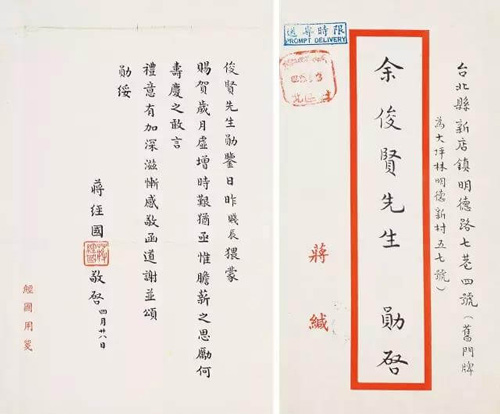 俊賢先生勛鑒日昨賤辰猥蒙
賜賀歲月虛增時艱猶亟惟膽薪之思勵何
壽慶之敢言
禮意有加深滋慚感敬函道謝並頌
勛綏
蔣經國 敬啓 四月廿八日
經國用箋
限時專送
PROMPT DELIVERY
台北縣新店鎮明德路七巷四號(舊門牌
為大坪林明德新村五七號)
余俊賢先生 勛啓
蔣緘